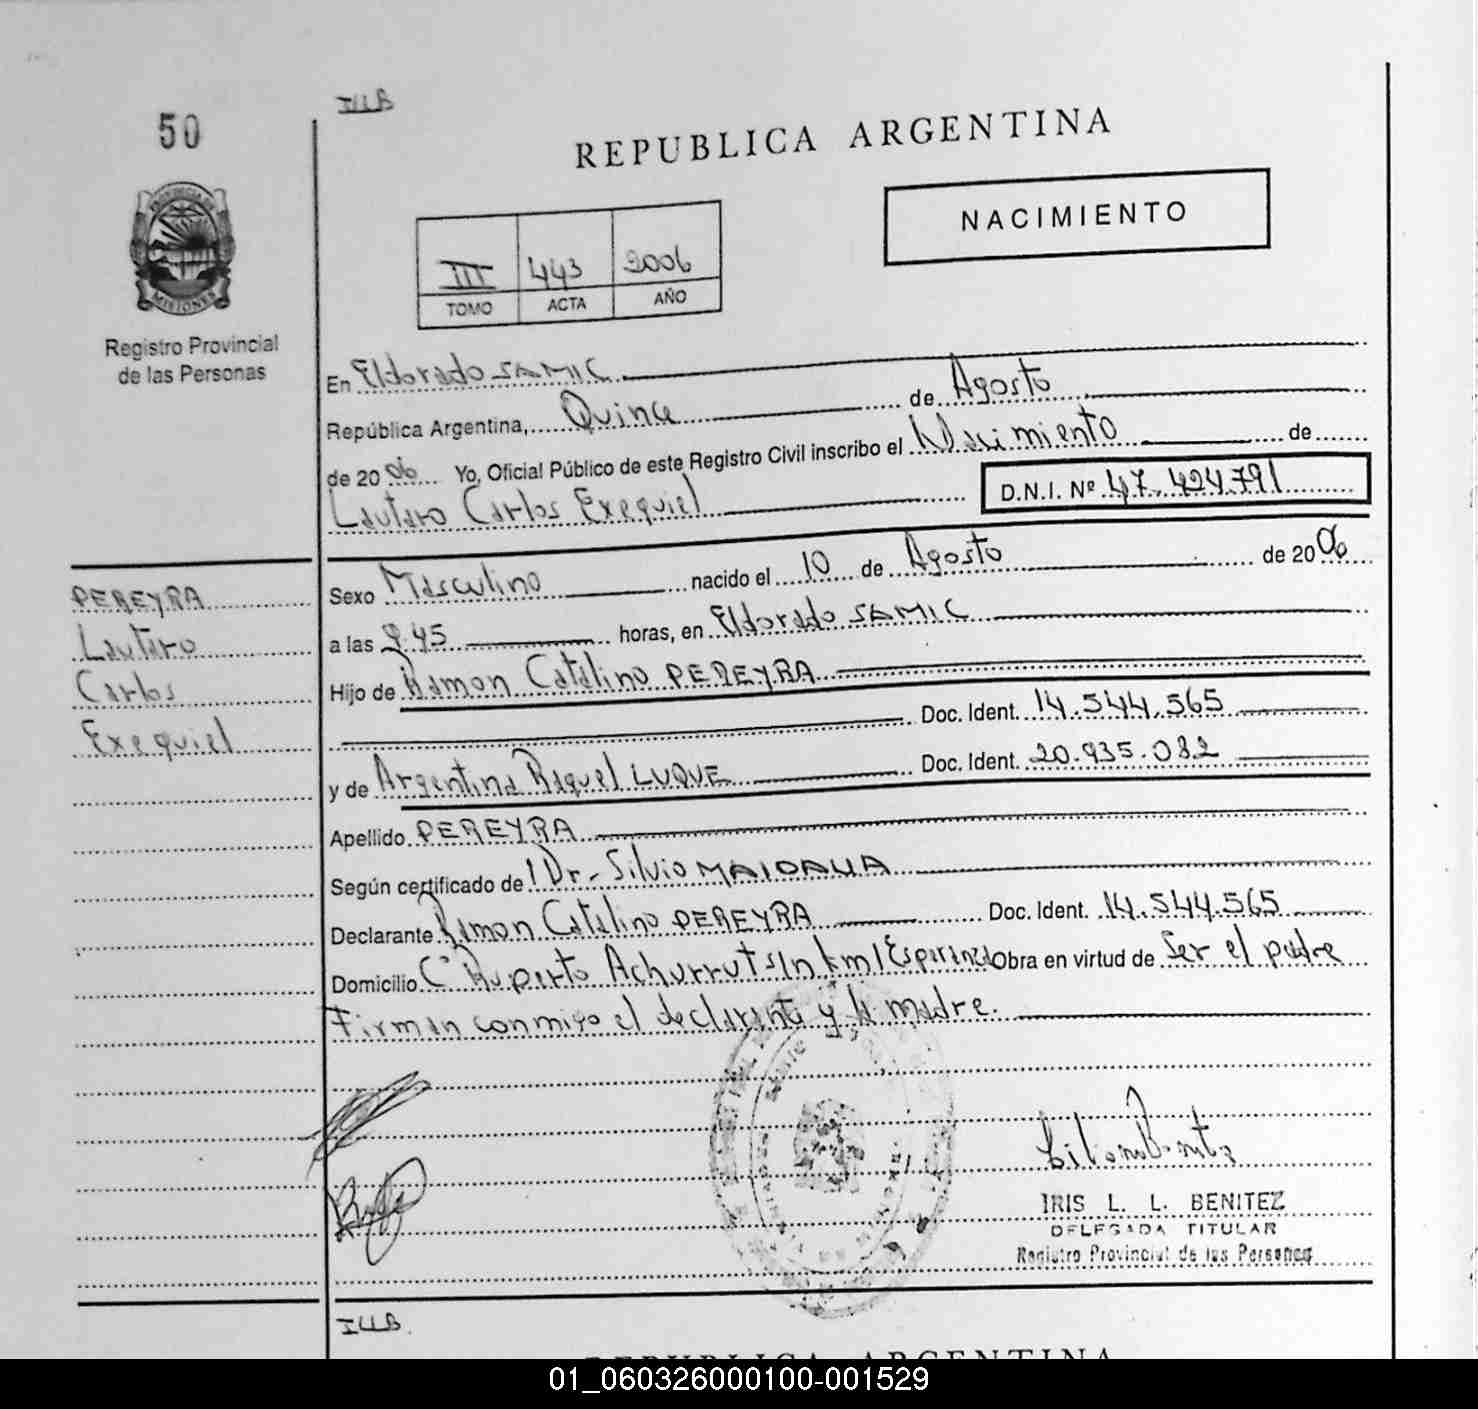 50
ILLB
REPUBLICA ARGENTINA
NACIMIENTO
PROVINCIA DE
MISIONES
Registro Provincial
de las Personas
III 443 2006
TOMO ACTA AÑO
En Eldorado SAMIC
República Argentina, Quince de Agosto
de 2006 Yo, Oficial Público de este Registro Civil inscribo el Nacimiento de
Lautaro Carlos Exequiel D.N.I. Nº 47.424.791
PEREYRA
Lautaro
Carlos
Exequiel
Sexo Masculino nacido el 10 de Agosto de 2006
a las 9.45 horas, en Eldorado SAMIC
Hijo de Ramon Catalino PEREYRA
Doc. Ident. 14.544.565
y de Argentina Raquel LUQUE Doc. Ident. 20.935.082
Apellido PEREYRA
Según certificado de Dr. Silvio MAIDANA
Declarante Ramon Catalino PEREYRA Doc. Ident. 14.544.565
Domicilio Cº Ruperto Achurrut s/n km 1 Esperanza Obra en virtud de Ser el padre
Firman conmigo el declarante y la madre.
IRIS L. L. BENITEZ
DELEGADA TITULAR
Registro Provincial de las Personas
ILLB.
REPUBLICA ARGENTINA
01_060326000100-001529